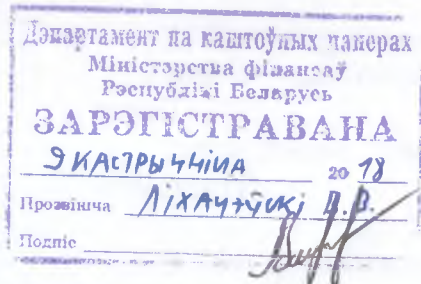 Дэпартамент па каштоўных паперах
Міністэрства фінансаў
Рэспублікі Беларусь
ЗАРЭГІСТРАВАНА
9 КАСТРЫЧНІКА 20 18
Прозвішча Ліхачэўскі Д.В.
Подпіс